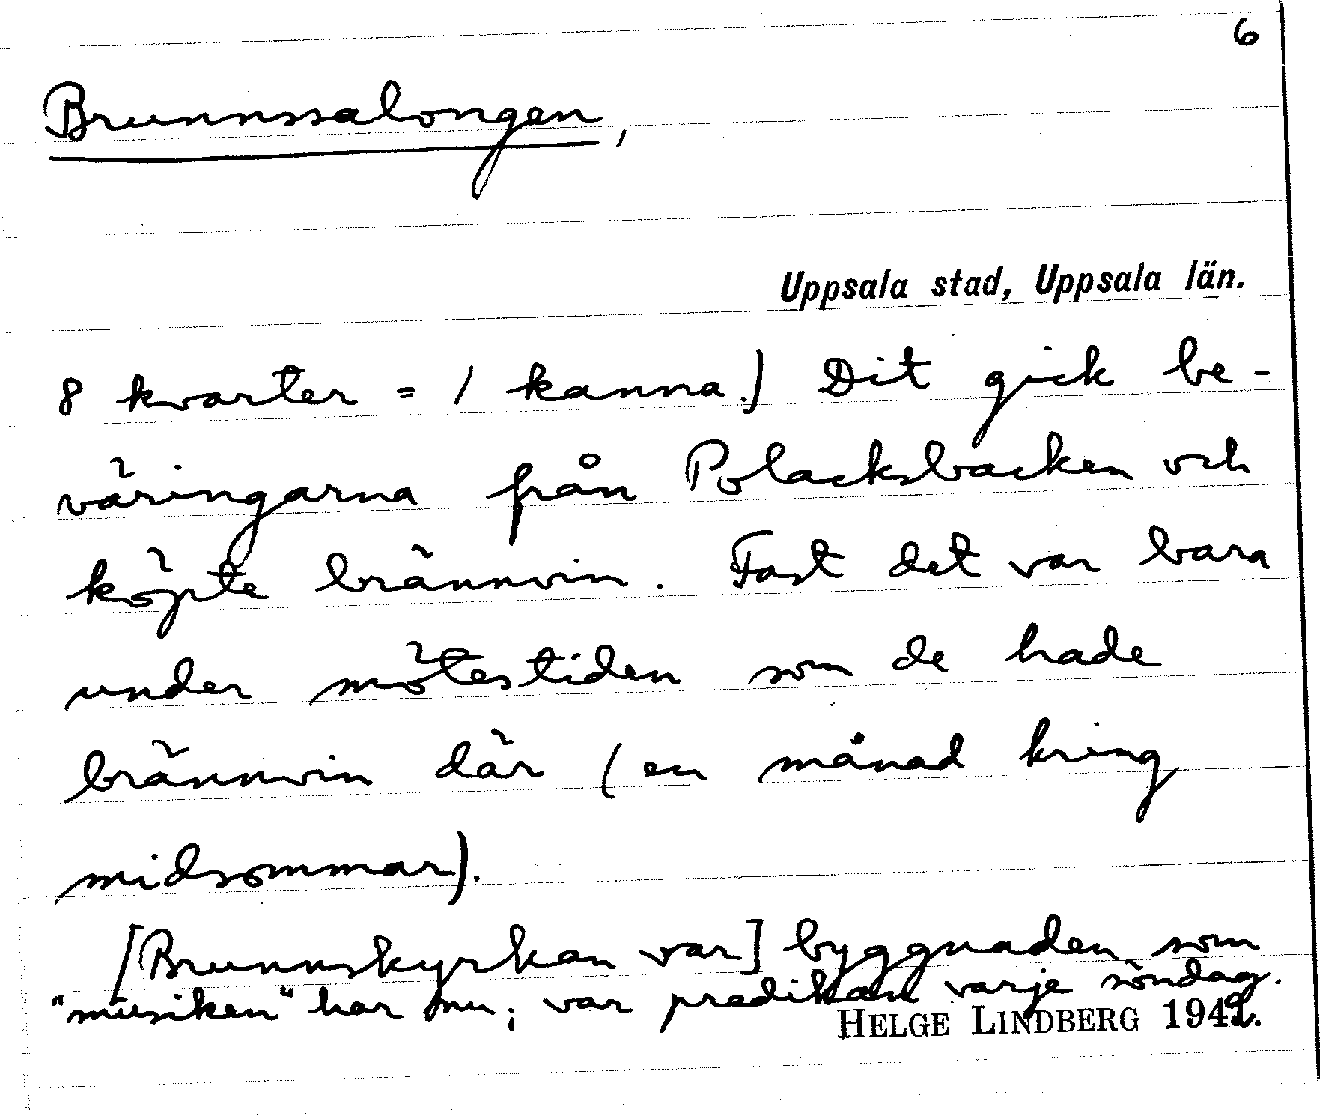 6
Brunnssalongen,
Uppsala stad, Uppsala län.
8 kvarter = 1 kanna.) Dit gick be-
väringarna från Polacksbacken och
köpte brännvin. Fast det var bara
under mötestiden som de hade
brännvin där (en månad kring
midsommar).
[Brunnskyrkan var] byggnaden som
"musiken" har nu; var predikan varje söndag.
HELGE LINDBERG 1942.